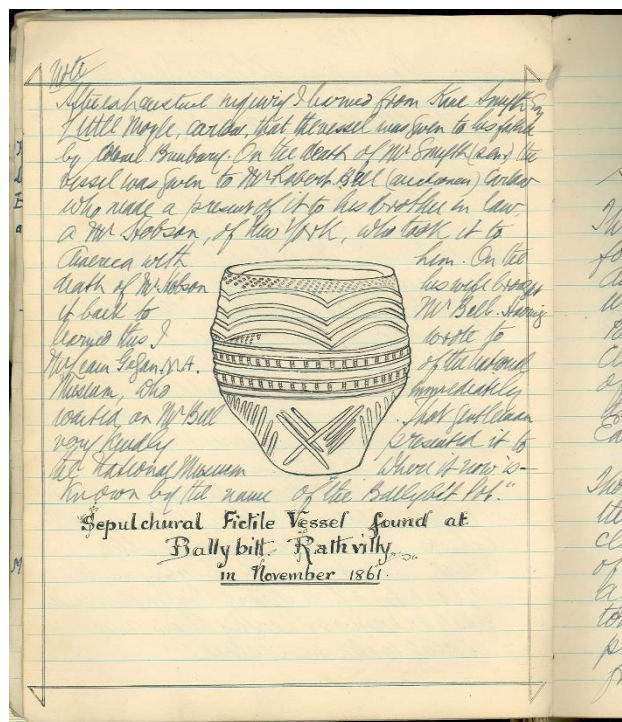 Note
After exhaustive inquiry I learned from Kane Smyth Esq
Little Moyle, Carlow, that the vessel was given to his father
by Colonel Bunbury. On the death of Mr Smyth (sen) the
vessel was given to Mr Robert Bell (auctioneer) Carlow
who made a present of it to his brother in law,
a Mr Hobson, of New York, who took it to
America with him. On the
death of Mr Hobson his wife brought
it back to Mr Bell. Having
learned this I wrote to
of the National
Museum, who immediately
waited on Mr Bell that gentleman
very kindly presented it to
the National Museum where it now is—
known by the name of "the Ballybit Pot."
Sepulchural Fictile Vessel found at
Ballybitt. Rathvilly
in November 1861.